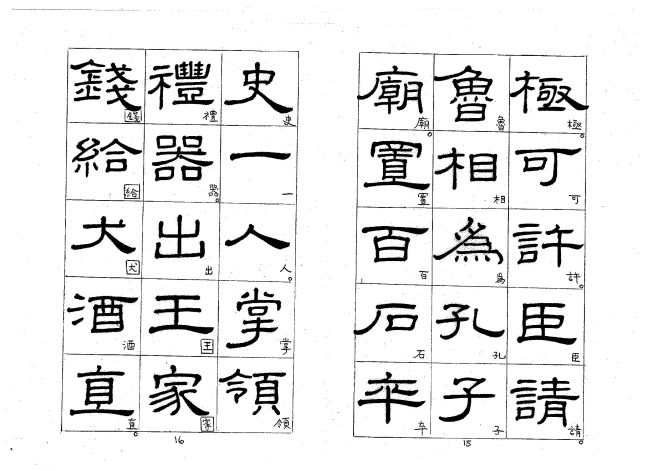 極可許臣請
極。可許。臣請。
魯相為孔子
魯相為孔子
廟置百石卒
廟。置百石卒
15
史一人掌領
史一人。掌領
禮器出王家
禮器。出王家
錢給犬酒直
錢給犬酒直。
16